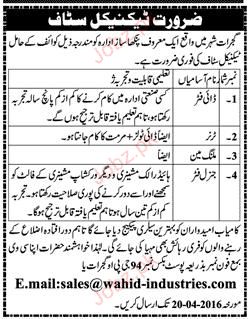 ضرورت ٹیکنیکل سٹاف
گجرات شہر میں واقع ایک معروف پنکھا ساز ادارہ کو مندرجہ ذیل کوائف کے حامل
ٹیکنیکل سٹاف کی فوری ضرورت ہے۔
نمبر شمار نام آسامیاں تعلیمی قابلیت و تجربہ
1- ڈائی فٹر کسی صنعتی ادارہ میں کام کرنے کا کم از کم پانچ سالہ تجربہ
رکھتا ہو تاہم تعلیم یافتہ قابل ترجیح ہوں گے۔
2- ٹرنر ایضاً ڈائی ٹولز + مرمت کا کام جانتا ہو۔
3- ملنگ مین ایضاً
4- جنرل فٹر ہائیڈرالک مشینری و دیگر ورکشاپ مشینری کے فالٹ کو
سمجھنے اور اسے دور کرنے کی پوری صلاحیت رکھتا ہو۔ تجربہ
کم از کم تین سال ہو تاہم تعلیم یافتہ قابل ترجیح ہوگا۔
کامیاب امیدواران کو بہترین سیلری پیکیج دیا جائے گا تاہم دور افتادہ اضلاع کے
رہنے والوں کو فری رہائش بھی مہیا کی جائے گی۔ لہٰذا خواہشمند حضرات اپنا سی وی
بمع فون نمبر بذریعہ پوسٹ بکس نمبر 94 جی پی او گجرات یا
E.mail:sales@wahid-industries.com
مورخہ 20-04-2016 تک ارسال کریں۔